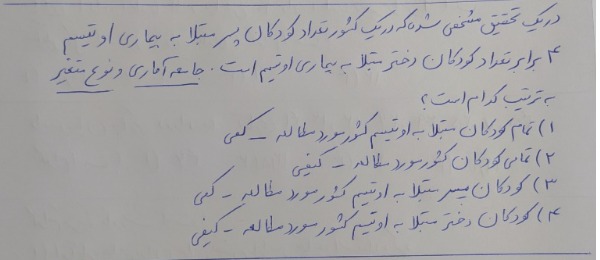 در یک تحقیق مشخص شده که در یک کشور تعداد کودکان پسر مبتلا به بیماری اوتیسم
۴ برابر تعداد کودکان دختر مبتلا به بیماری اوتیسم است. جامعه آماری و نوع متغیر
به ترتیب کدام است؟
۱) تمام کودکان مبتلا به اوتیسم کشور مورد مطالعه - کمی
۲) تمامی کودکان کشور مورد مطالعه - کیفی
۳) کودکان پسر مبتلا به اوتیسم کشور مورد مطالعه - کمی
۴) کودکان دختر مبتلا به اوتیسم کشور مورد مطالعه - کیفی